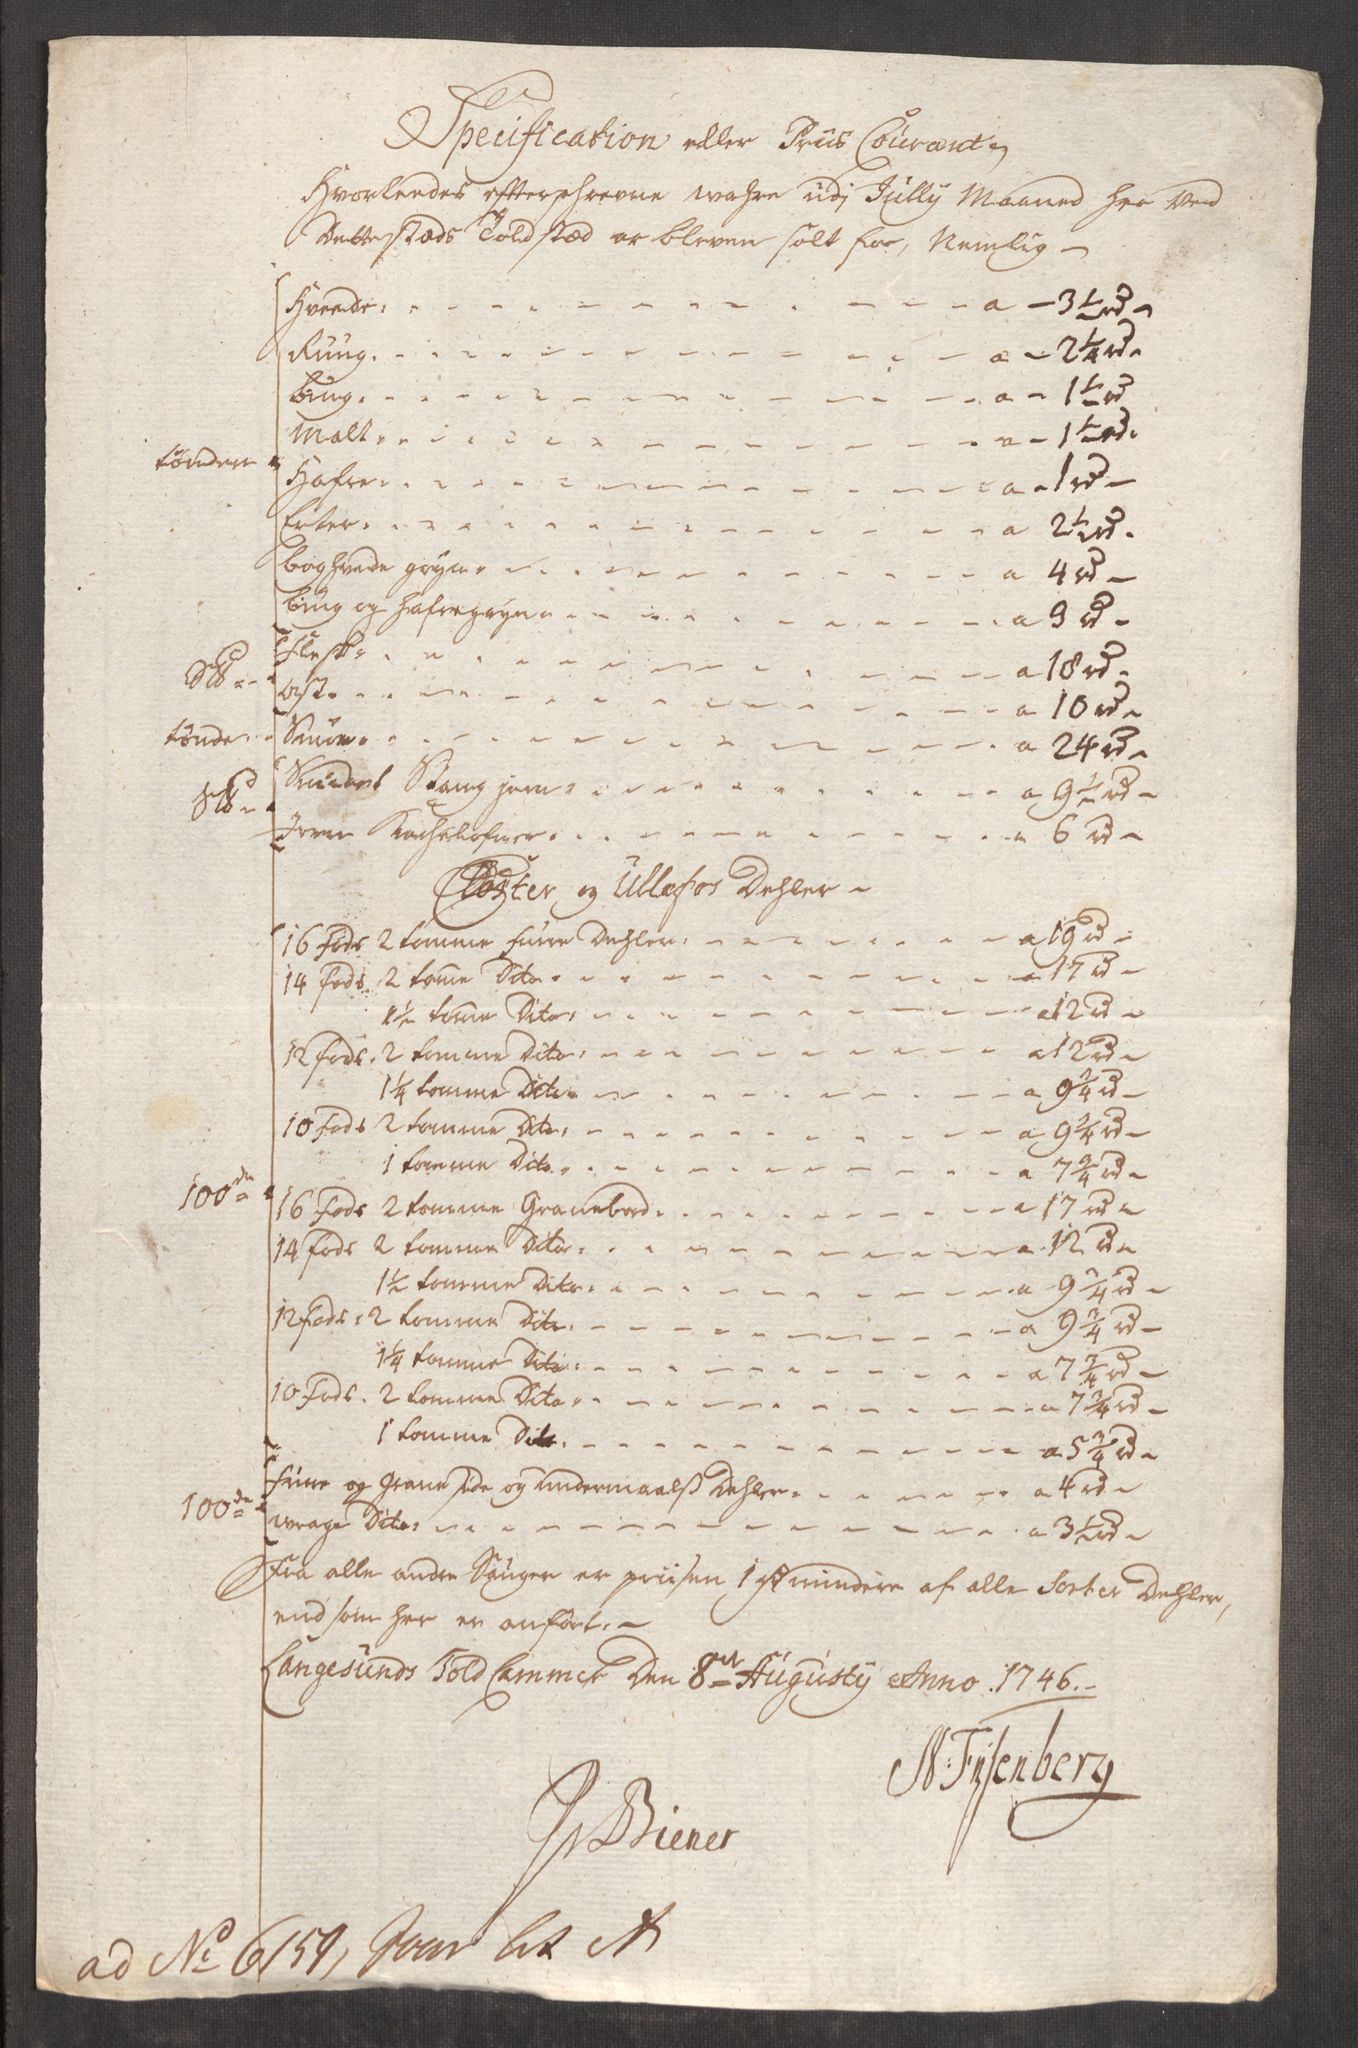 Specification eller Priis Courant
Hvorleedes efterschrevne wahre udj Jully Maaned her ved
Dette stæds Told stæd er bleven solt for, Nemlig
Hveede a 3½ rd
Ruug a 2¼ rd
biug a 1½ rd
Malt a 1½ rd
tønden
Hafre a 1 rd
Erter a 2½ rd
boghvede gryn a 4 rd
biug og hafregryn a 3 rd
Flesk a 18 rd
Ost a 10 rd
tønde Smør a 24 rd
Smidet Stang jern a 9½ rd
Jern Kachelofner a 6 rd
Closter og Ullefos Dehler
16 fods 2 tomme furre Dehler a 19 rd
14 fods 2 tomme Dito a 17 rd
1½ tomme Dito a 12 rd
12 fods 2 tomme Dito a 12 rd
1¼ tomme Dito a 9¾ rd
10 fods 2 tomme Dito a 9¾ rd
1 tomme Dito a 7¾ rd
100de
16 fods 2 tomme Granebord a 17 rd
14 fods 2 tomme Dito a 12 rd
1½ tomme Dito a 9¾ rd
12 fods 2 tomme Dito a 9¾ rd
1¼ tomme Dito a 7¾ rd
10 fods 2 tomme Dito a 7¾ rd
1 tomme Dito a 5¾ rd
furre og grane side og undermaals Dehler a 4 rd
100de
wrage Dito a 3½ rd
Fra alle andre Sauger er priisen 1 rd mindere af alle Sorter Dehler,
end som her er anført.
Langesunds Told Cammer Den 8de Augusty Anno 1746.
N: Fysenberg
Biener
ad No 6159, Lit A